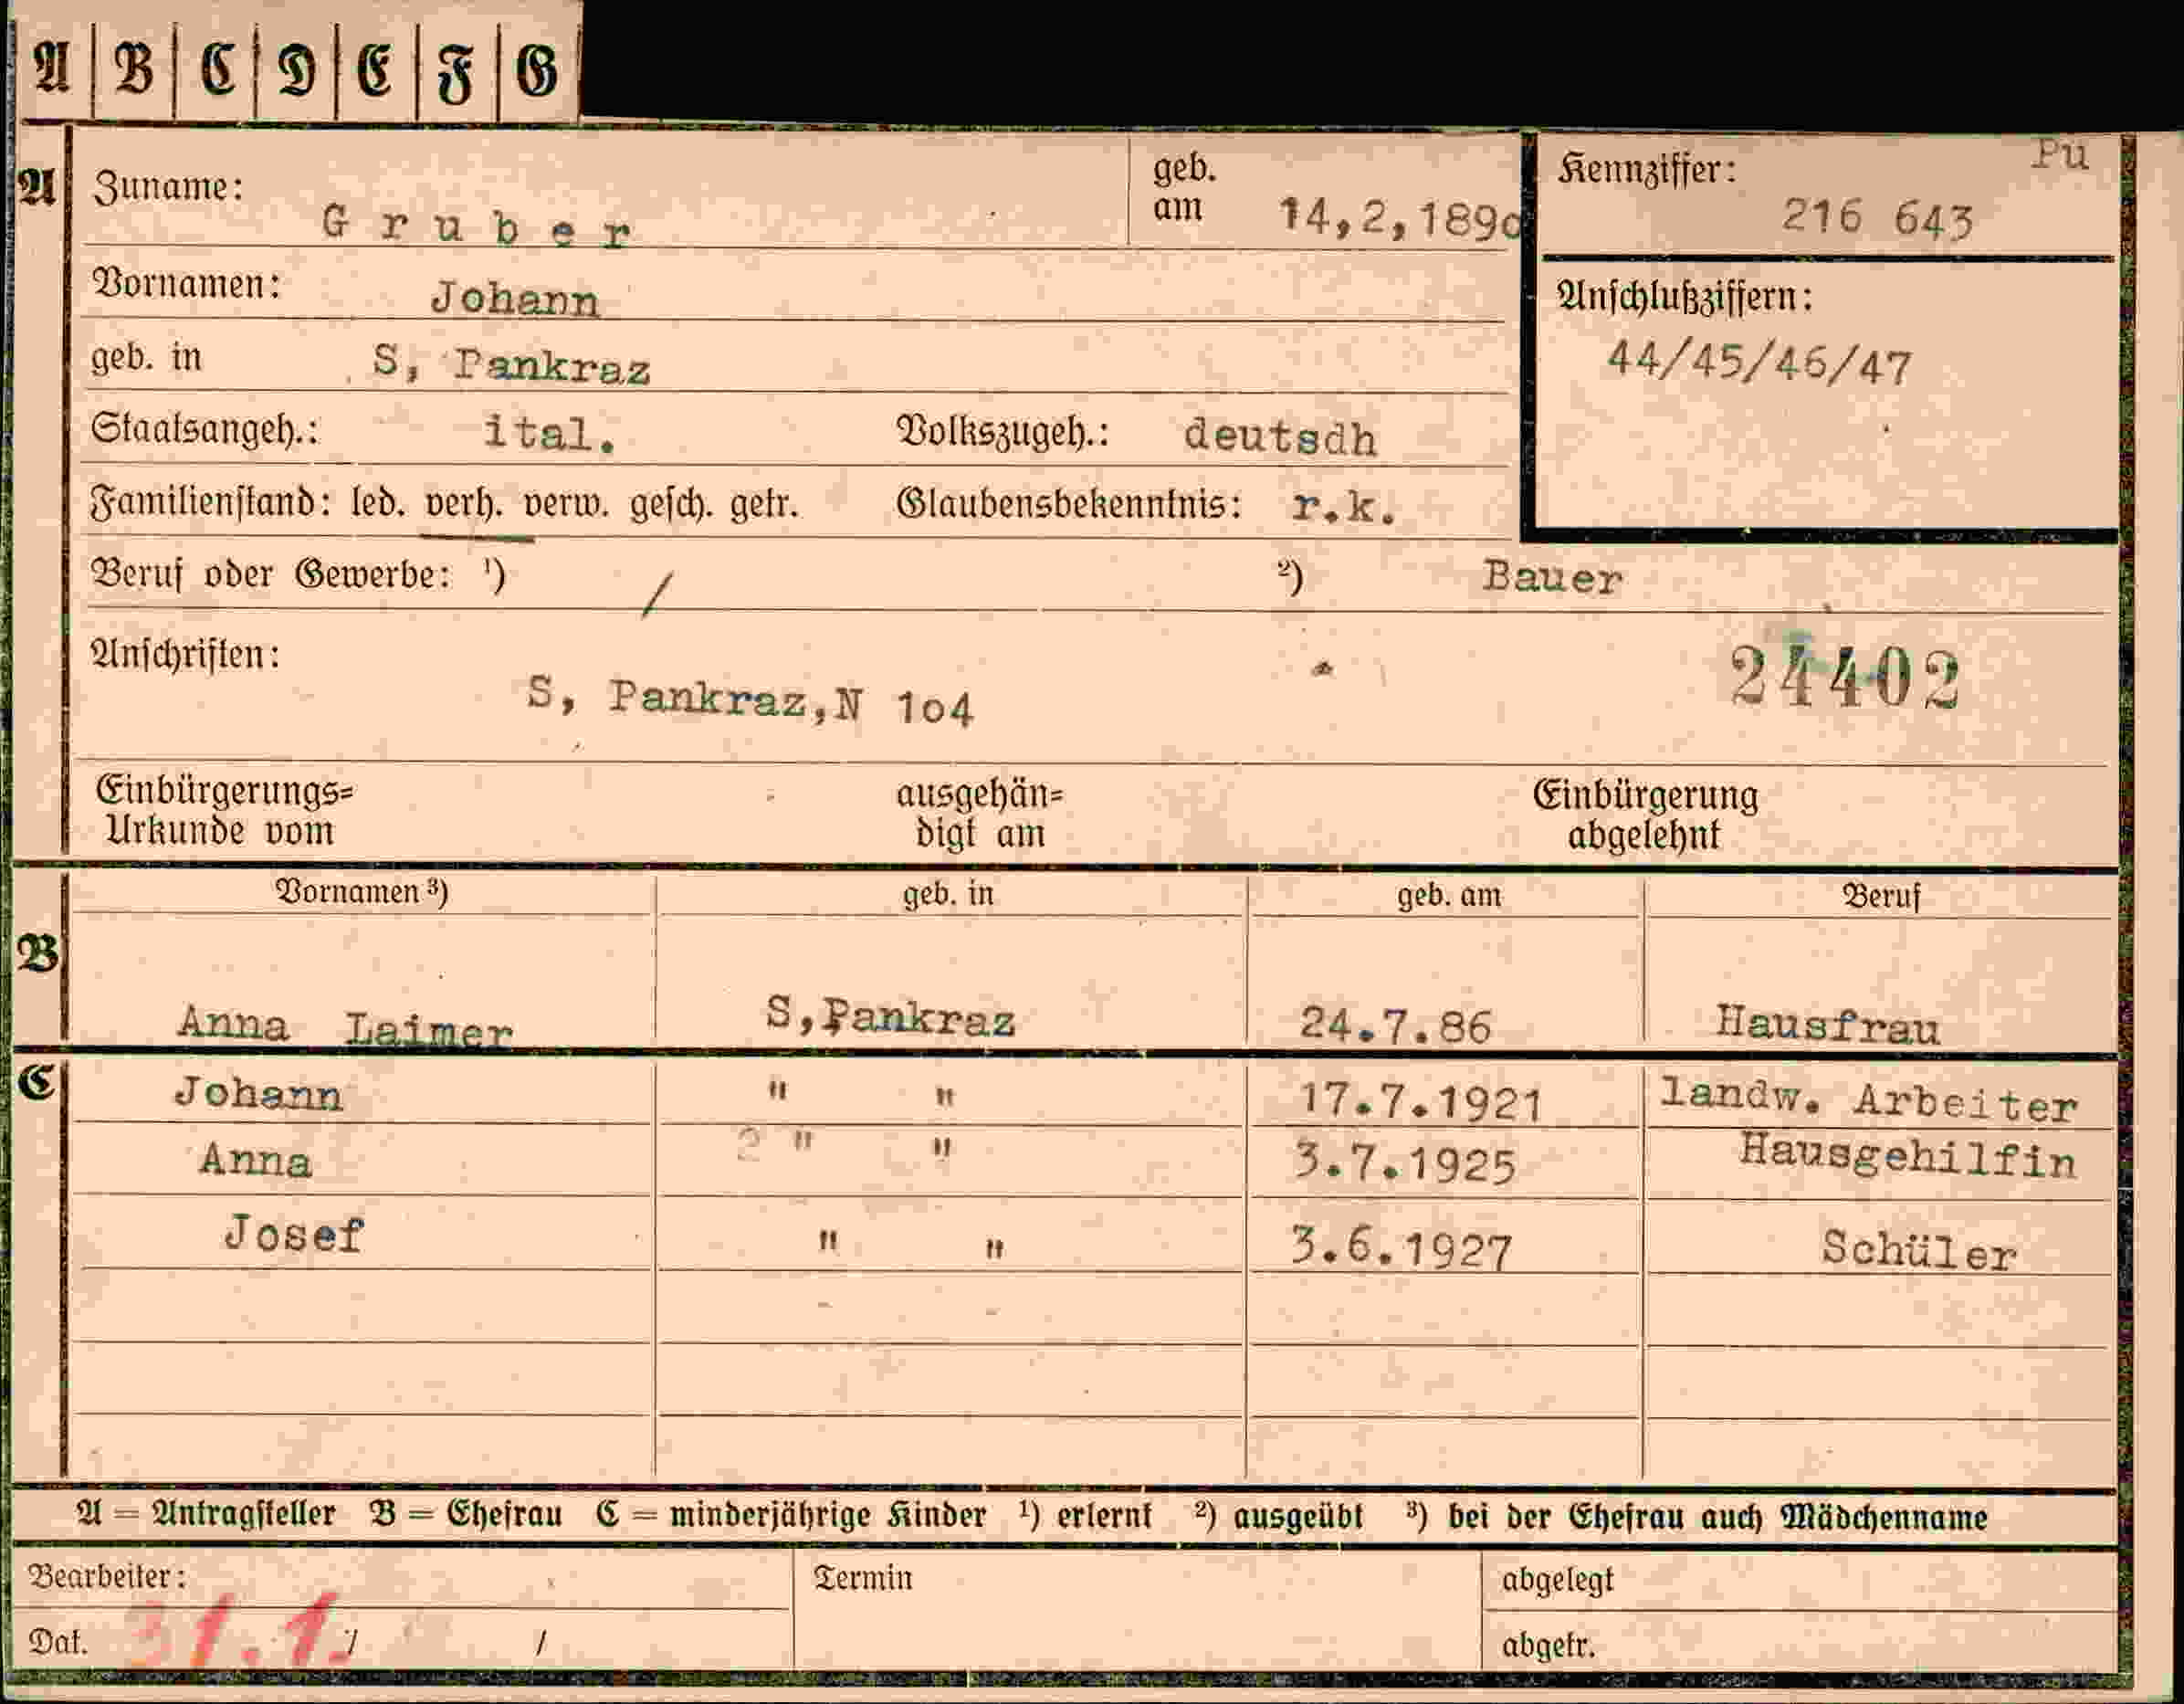 A B C D E F G
Pu
A Zuname: Gruber geb. am 14,2,189o Kennziffer: 216 643
Vornamen: Johann Anschlußziffern:
geb. in S, Pankraz 44/45/46/47
Staatsangeh.: ital. Volkszugeh.: deutsdh
Familienstand: led. verh. verw. gesch. getr. Glaubensbekenntnis: r.k.
Beruf oder Gewerbe: ¹) / ²) Bauer
Anschriften: 24402
S, Pankraz,N 1o4
Einbürgerungs= ausgehän= Einbürgerung
Urkunde vom digt am abgelehnt
Vornamen ³) geb. in geb. am Beruf
B
Anna Laimer S,Pankraz 24.7.86 Hausfrau
C Johann " " 17.7.1921 landw. Arbeiter
Anna 2 " " 3.7.1925 Hausgehilfin
Josef " " 3.6.1927 Schüler
A = Antragsteller B = Ehefrau C = minderjährige Kinder ¹) erlernt ²) ausgeübt ³) bei der Ehefrau auch Mädchenname
Bearbeiter: Termin abgelegt
Dat. 31.1. / / abgetr.